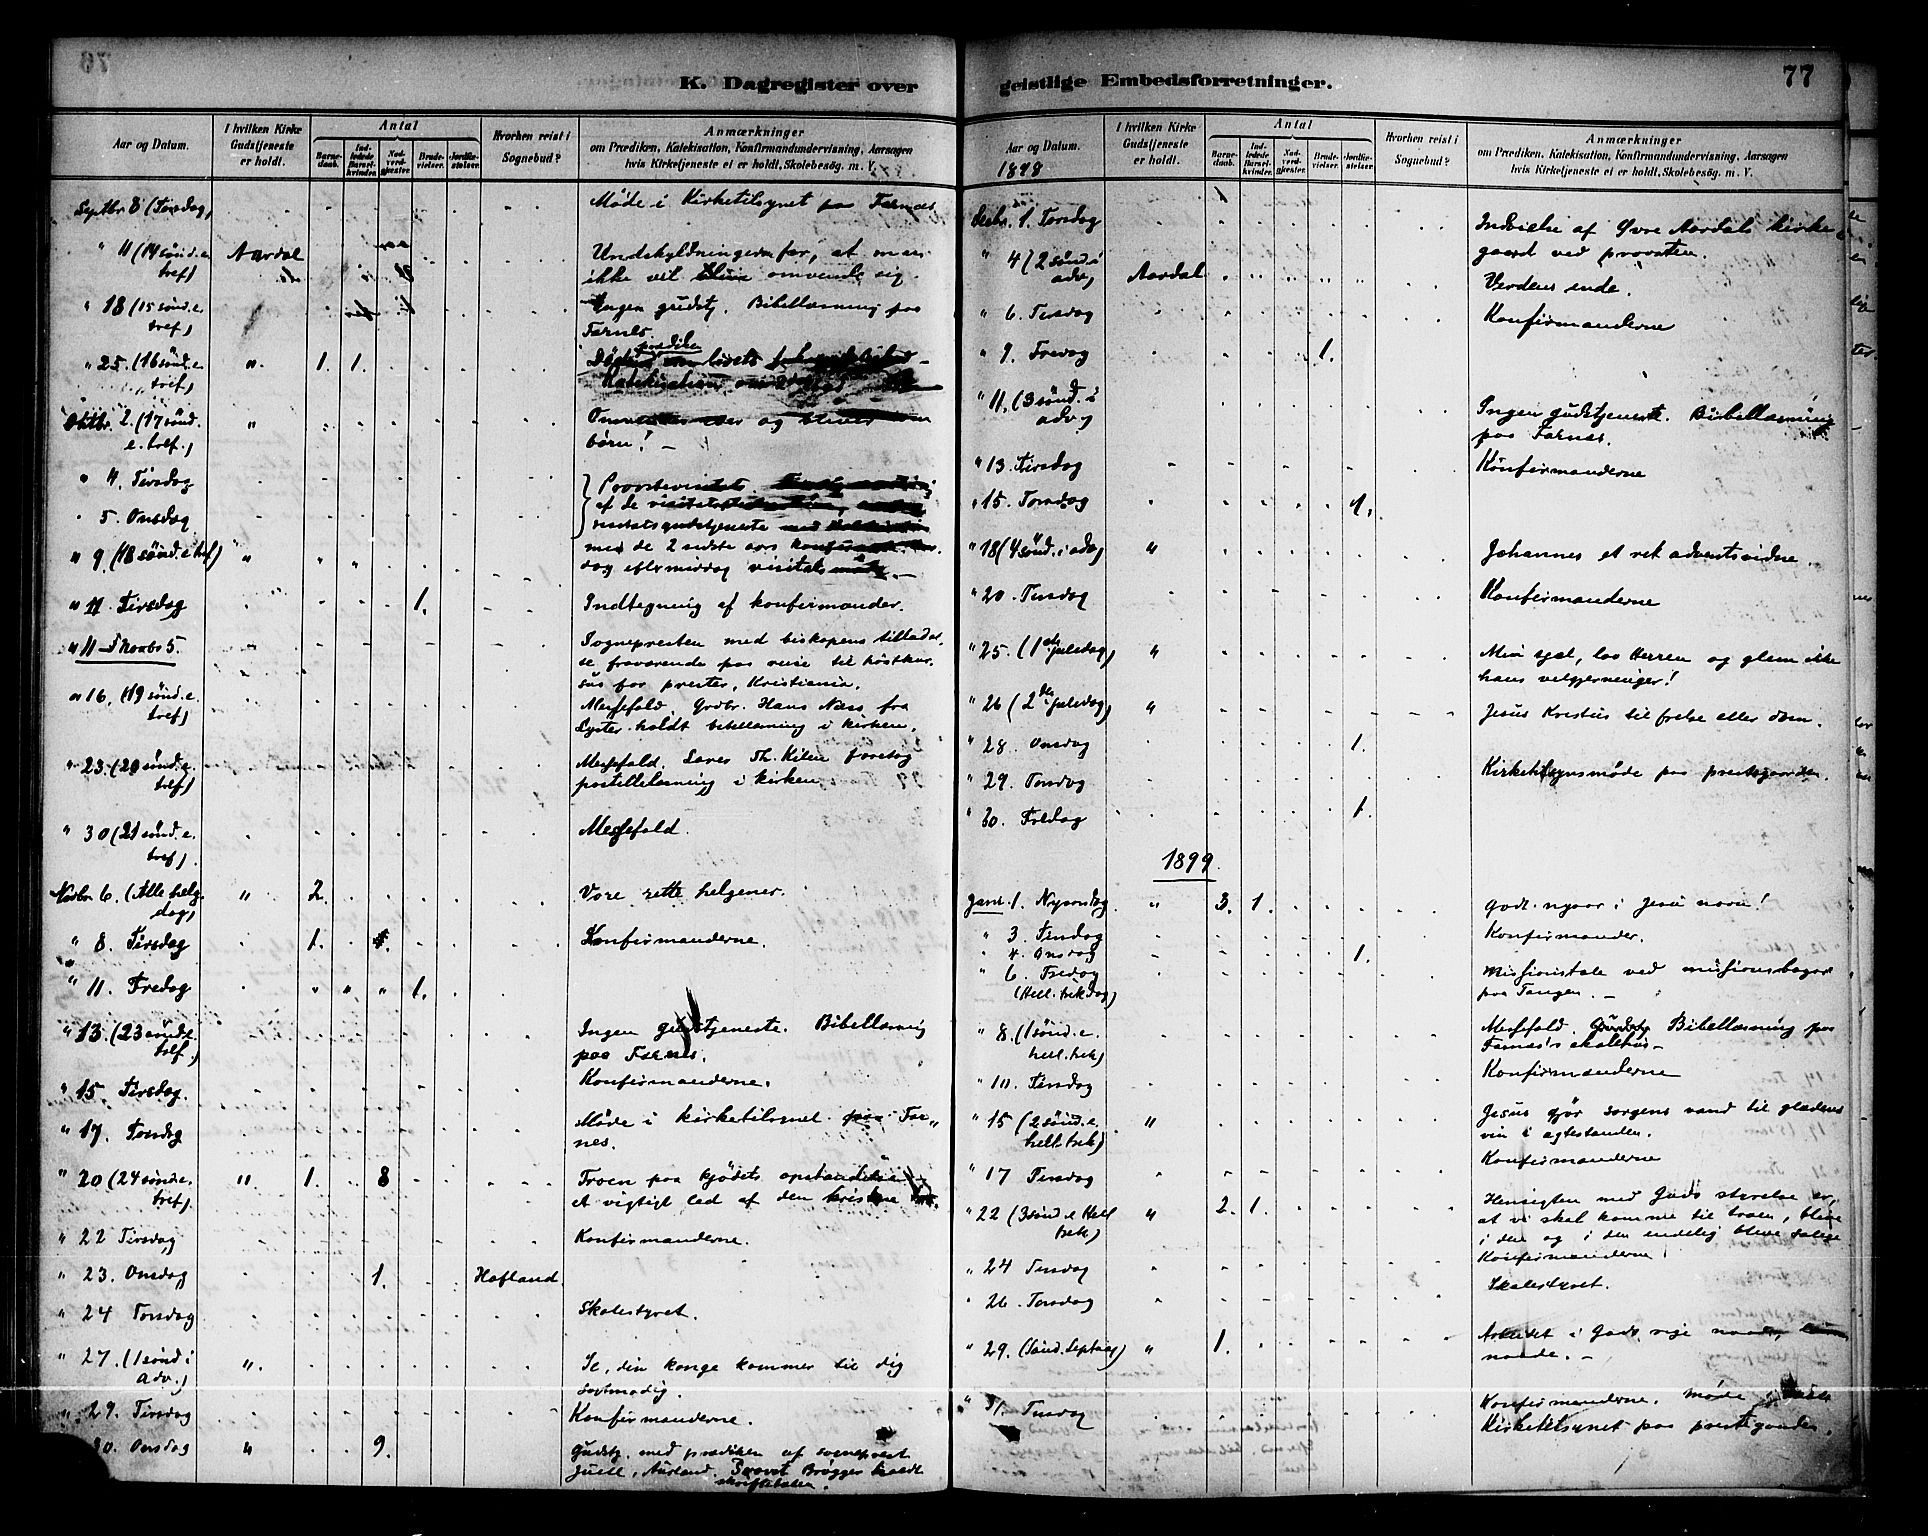 76
K. Dagregister over
Aar og Datum.
I hvilken Kirke Gudstjeneste er holdt.
Antal
Barnedaab.
Indledede Barselkvinder.
Nadverdgjester.
Brudevielser.
Jordfæstelser.
Hvorhen reist i Sognebud?
Anmærkninger
om Prædiken, Katekisation, Konfirmandundervisning, Aarsagen
hvis Kirketjeneste ei er holdt, Skolebesøg. m. V.
Septbr 8 (Torsdag) Møde i Kirketilsynet paa Farnes
" 11 (14 sønd. e. tref) Aardal Undskyldningerne for, at man
ikke vil omvende sig.
" 18 (15 sønd. e. tref) Ingen gudstj. Bibellæsning paa
Farnes
" 25. (16 sønd. e. tref) " 1. 1. livets
Katekisation om
Oktbr. 2. (17 sønd. e. tref.) " og bliver som
børn! –
" 4. Tirsdag Provstevisitats
" 5. Onsdag af de
visitatsgudstjeneste med
" 9 (18 sønd. e. tref) " med de 2 sidste aars
dag eftermiddag visitats
" 11. Tirsdag 1. Indtegning af konfirmander.
" 11 – Novbr 5. Sognepresten med biskopens tilladel-
se fraværende paa reise til høstkur-
sus for prester, Kristiania.
" 16. (19 sønd. e. tref) Messefald. Grdbr. Hans Næss fra
Lyster holdt bibellæsning i kirken.
" 23. (20 sønd. e. tref) Messefald. Lars Th. Hilen foretog
postillelæsning i kirken
" 30 (21 sønd. e. tref) Messefald.
Novbr. 6. (Alle helg. dag) " 2. Vore rette helgener.
" 8. Tirsdag 1. Konfirmanderne.
" 11. Fredag " " " 1.
" 13. (23 sønd. e. tref.) Ingen gudstjeneste. Bibellæsning
paa Farnes.
" 15. Tirsdag. Konfirmanderne.
" 17. Torsdag Møde i kirketilsynet paa Far-
nes.
" 20 (24 sønd. e. tref) " 1. 8 Troen paa kjødets opstandelse
et vigtigt led af den kristne
" 22 Tirsdag Konfirmanderne.
" 23. Onsdag 1. Hofland
" 24 Torsdag Skolestyret.
" 27. (1 sønd i adv.) " Se, din konge kommer til dig
sagtmodig.
" 29. Tirsdag Konfirmanderne.
30. Onsdag " 9. Gudstj. med prædiken af sogneprest
Juell, Aurland. Provst Brøgger holdt
skriftetalen.
77
geistlige Embedsforretninger.
Aar og Datum.
1898
I hvilken Kirke Gudstjeneste er holdt.
Antal
Barnedaab.
Indledede Barselkvinder.
Nadverdgjester.
Brudevielser.
Jordfæstelser.
Hvorhen reist i Sognebud?
Anmærkninger
om Prædiken, Katekisation, Konfirmandundervisning, Aarsagen
hvis Kirketjeneste ei er holdt, Skolebesøg. m. V.
Decbr. 1. Torsdag Indvielse af Øvre Aardals kirke-
gaard ved provsten.
" 4 (2 sønd i adv) Aardal Verdens ende.
" 6. Tirsdag Konfirmanderne
" 9. Fredag 1.
" 11. (3 sønd. i adv.) Ingen gudstjeneste. Bibellæsning
paa Farnes.
" 13. Tirsdag Konfirmanderne
" 15. Torsdag 1.
" 18 (4 sønd. i adv) " Johannes et ret adventsvidne.
" 20. Tirsdag Konfirmanderne
" 25. (1ste juledag) " Min sjæl, lov Herren og glem ikke
hans velgjerninger!
" 26 (2den juledag) " Jesus Kristus til frelse eller dom.
" 28. Onsdag 1.
" 29. Torsdag Kirketilsynsmøde paa prestegaarden.
" 30. Fredag 1.
1899
Janr. 1. Nyaarsdag " 3. 1. Godt nyaar i Jesu navn!
" 3. Tirsdag Konfirmander.
" 4. Onsdag 1.
" 6. Fredag (Hell. 3 k. dag) Missionstale ved missionsbazar
paa Tangen. –
" 8. (1 sønd. e. hell. 3 k.) Messefald. Bibellæsning paa
Farnæs's skolehus –
" 10. Tirsdag Konfirmanderne
" 15 (2 sønd. e. hell. 3 k.) " Jesus gjør sorgens vand til glædens
vin i egtestanden.
" 17 Tirsdag Konfirmanderne
" 22 (3 sønd. e. Hell. 3 k.) " 2. 1. Hensigten med Guds styrelse er,
at vi skal komme til troen, blive
i den og i den endelig blive salige
" 24 Tirsdag Konfirmanderne
" 26. Torsdag Skolestyret.
" 29. (Sønd. Septuag) " 1. Arbeidet i Guds rige
naade. –
" 31. Tirsdag Konfirmanderne. Møde i
Kirketilsynet paa prestegaarden.